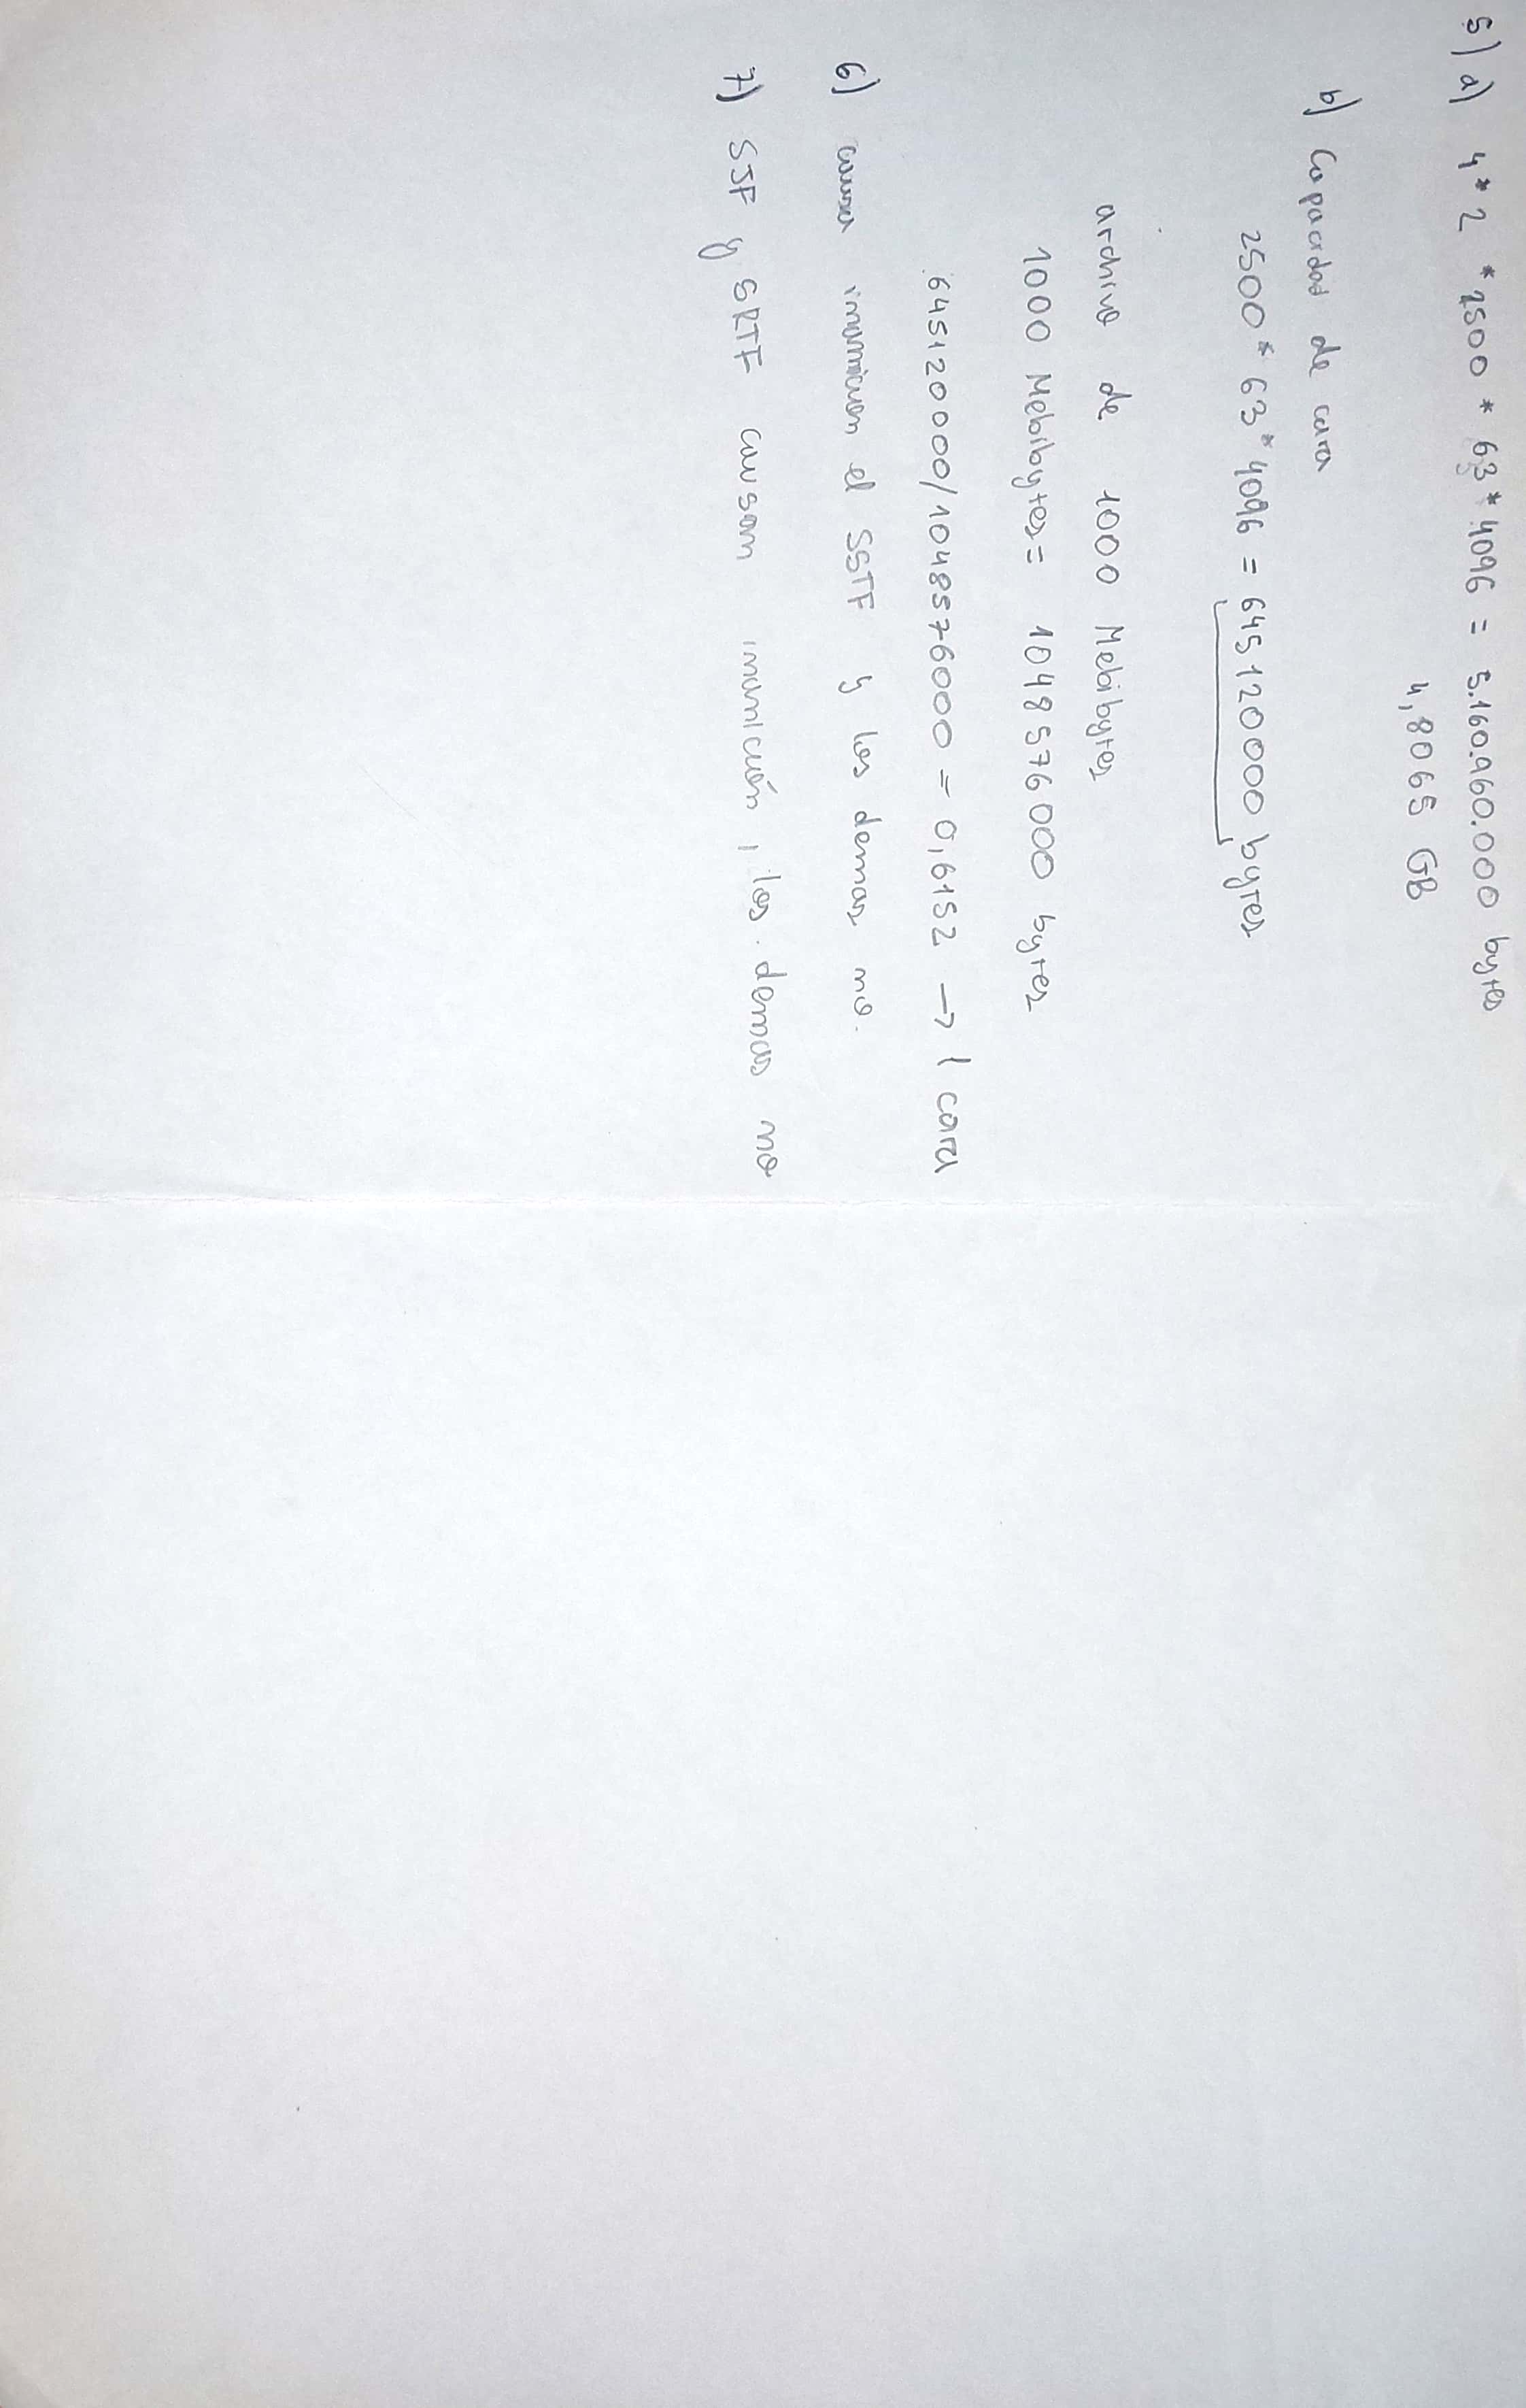 5) a) 4*2 *2500 * 63*4096 = 5.160.960.000 bytes
4,8065 GB
b) Capacidad de cara
2500*63*4096 = 645120000 bytes
archivo de 1000 Mebibytes
1000 Mebibytes= 1048576000 bytes
645120000/1048576000 = 0,6152 → 1 cara
6) causa inanicion el SSTF y los demas no.
7) SJF y SRTF causan inanición, los demas no